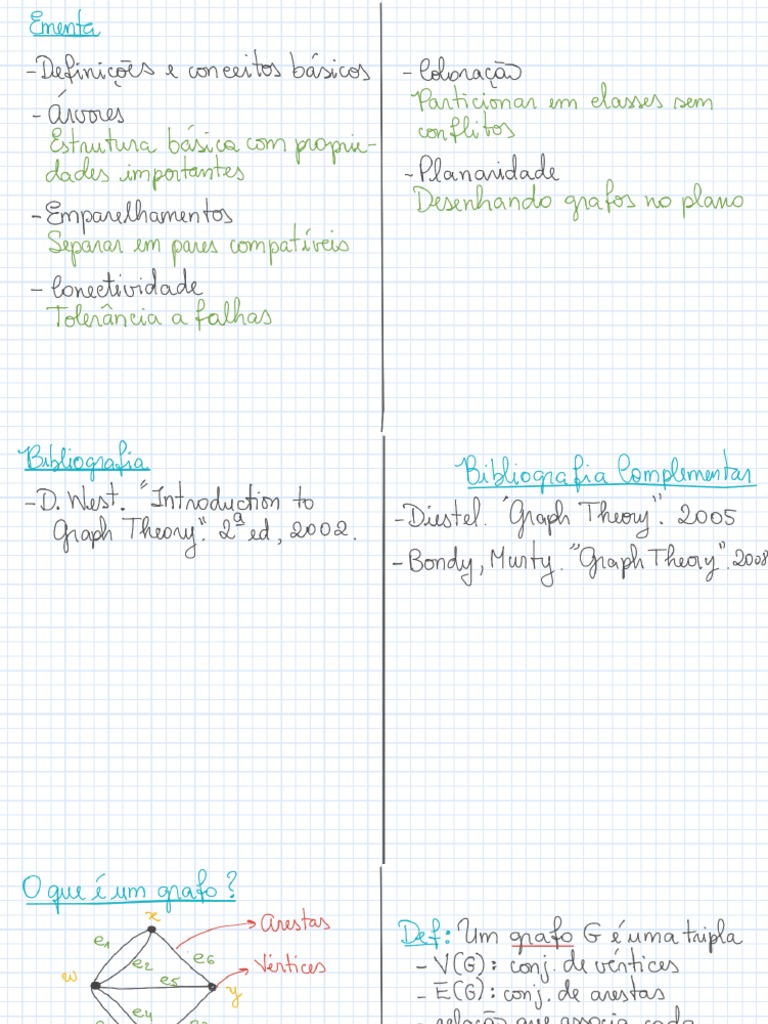 Ementa
- Definições e conceitos básicos
- Árvores
Estrutura básica com proprie-
dades importantes
- Emparelhamentos
Separar em pares compatíveis
- Conectividade
Tolerância a falhas
- Coloração
Particionar em classes sem
conflitos
- Planaridade
Desenhando grafos no plano
Bibliografia
- D. West. "Introduction to
Graph Theory". 2ª ed, 2002.
Bibliografia Complementar
- Diestel. "Graph Theory". 2005
- Bondy, Murty. "Graph Theory". 2008
O que é um grafo?
x
Arestas
e1
e2
e6
Vértices
w
e5
y
e4
Def: Um grafo G é uma tripla
- V(G): conj. de vértices
- E(G): conj. de arestas
- relação que associa cada